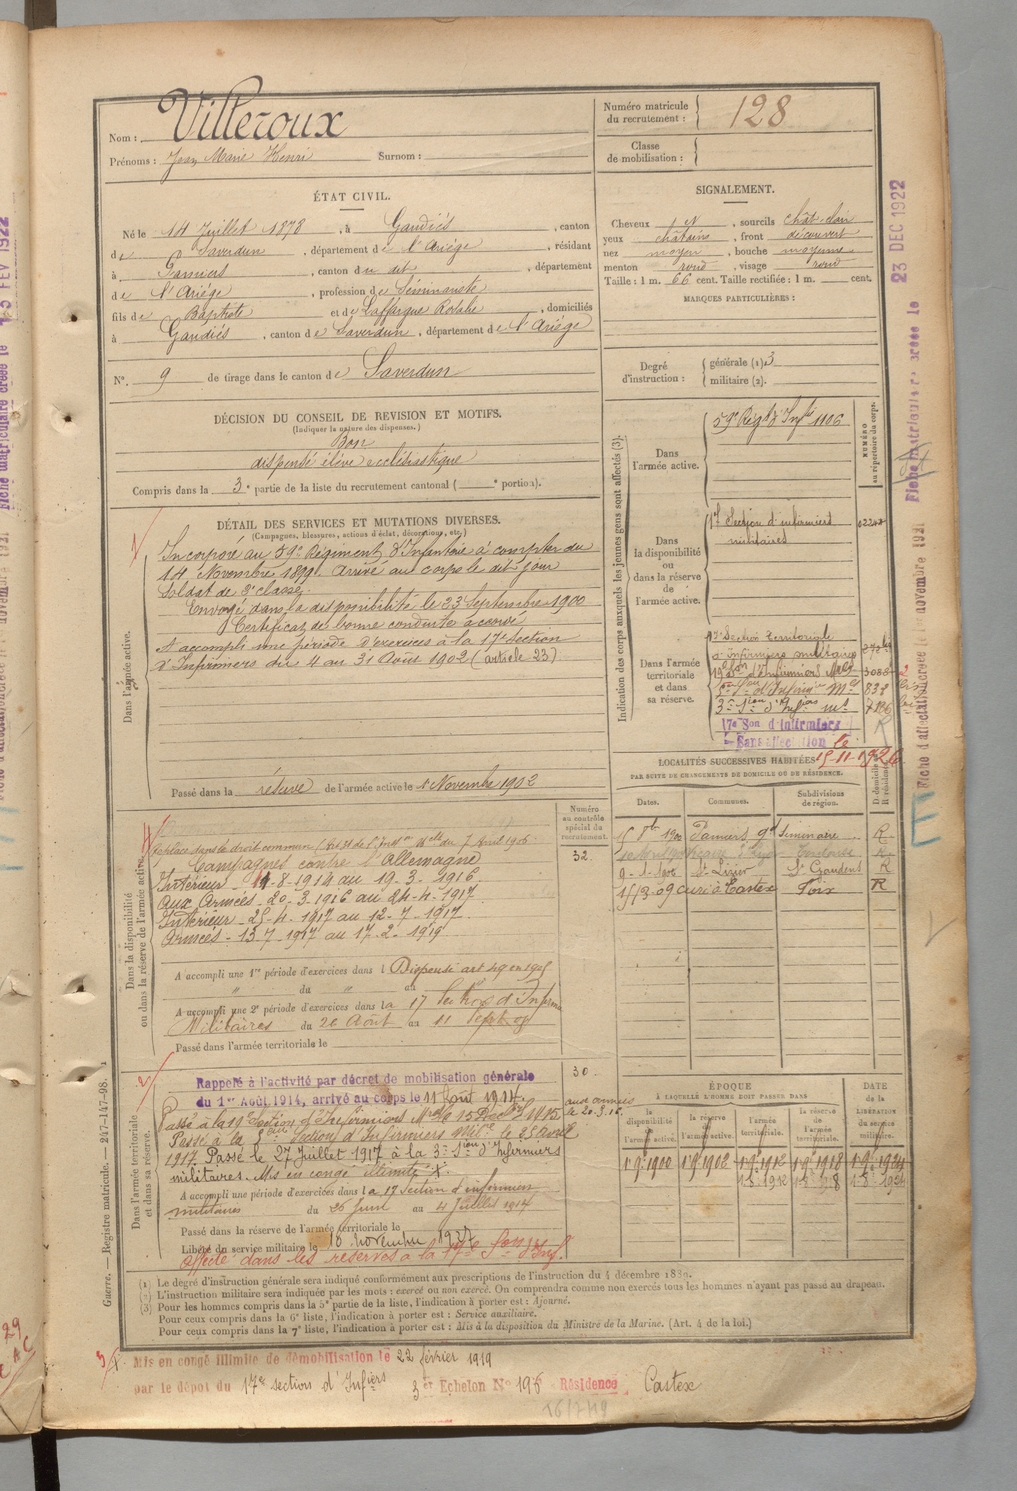 Nom : Villeroux
Prénoms : Jean Marie Henri Surnom :
Numéro matricule du recrutement : 128
Classe de mobilisation :
ÉTAT CIVIL.
Né le 14 Juillet 1878, à Gaudiès, canton
de Saverdun, département de l'Ariège, résidant
à Pamiers, canton du dit, département
de l'Ariège, profession de Séminariste
fils de Baptiste et de Laffargue Rosalie, domiciliés
à Gaudiès, canton de Saverdun, département de l'Ariège
N°. 9 de tirage dans le canton de Saverdun
SIGNALEMENT.
Cheveux N, sourcils chât. clair
yeux châtains, front découvert
nez moyen, bouche moyenne
menton rond, visage rond
Taille : 1 m. 66 cent. Taille rectifiée : 1 m. cent.
MARQUES PARTICULIÈRES :
Degré d'instruction : générale (1) 3
militaire (2).
DÉCISION DU CONSEIL DE REVISION ET MOTIFS.
(Indiquer la nature des dispenses.)
Bon
dispensé élève ecclésiastique
Compris dans la 3e partie de la liste du recrutement cantonal ( e portion).
DÉTAIL DES SERVICES ET MUTATIONS DIVERSES.
(Campagnes, blessures, actions d'éclat, décorations, etc.)
Dans l'armée active.
Incorporé au 59e Régiment d'Infanterie à compter du
14 Novembre 1899. Arrivé au corps le dit jour
Soldat de 2e classe.
Envoyé dans la disponibilité le 23 Septembre 1900
Certificat de bonne conduite accordé
A accompli une période d'exercices à la 17e Section
d'Infirmiers du 4 au 31 Août 1902 (article 23)
Passé dans la réserve de l'armée active le 1er Novembre 1902
Indication des corps auxquels les jeunes gens sont affectés (3).
NUMÉRO au répertoire du corps.
Dans l'armée active.
59e Régt d'Infie 1106
Dans la disponibilité ou dans la réserve de l'armée active.
17e Section d'infirmiers
militaires
Dans l'armée territoriale et dans sa réserve.
17e Section territoriale
d'Infirmiers militaires
19e Son d'Infirmiers Mres 3088
5e Son d'Infirm Mres 838
3e Son d'Infirs mres
17e Son d'Infirmiers
Sans affectation le
15-11-1926
LOCALITÉS SUCCESSIVES HABITÉES
PAR SUITE DE CHANGEMENTS DE DOMICILE OU DE RÉSIDENCE.
Dates. Communes. Subdivisions de région. D domicile R résidence.
15 8bre 1900 Pamiers gd Séminaire R
9-1-1906 St Lizier St Gaudens R
15/13 09 curé à Castex Foix R
Numéro au contrôle spécial du recrutement.
32
Dans la disponibilité ou dans la réserve de l'armée active.
Campagnes contre l'Allemagne
Intérieur - 11-8-1914 au 19-3-1916
Aux Armées - 20-3-1916 au 24-4-1917
Intérieur - 25-4-1917 au 12-7-1917
Armées - 13-7-1917 au 17-2-1919
A accompli une 1re période d'exercices dans l Dispensé art 49 en 1905
" du " au
A accompli une 2e période d'exercices dans la 17 Section d'Infirm
Militaires du 20 Août au 11 Sept 07
Passé dans l'armée territoriale le
Dans l'armée territoriale et dans sa réserve.
30
aux armées
le 20.3.16.
Rappelé à l'activité par décret de mobilisation générale
du 1er Août 1914, arrivé au corps le 11 Août 1914.
Passé à la 19e Section d'Infirmiers Mres le 15 Décbre 1915
Passé à la 5e Section d'Infirmiers Milres le 25 Avril
1917. Passé le 27 Juillet 1917 à la 3e Son d'Infirmiers
militaires. Mis en congé illimité X.
A accompli une période d'exercices dans la 17 Section d'infirmiers
militaires du 20 Juin au 4 Juillet 1914
Passé dans la réserve de l'armée territoriale le
Libéré du service militaire le 10 novembre 1927
Affecté dans les réserves à la 17e Son d'Inf.
ÉPOQUE
À LAQUELLE L'HOMME DOIT PASSER DANS
la disponibilité de l'armée active. la réserve de l'armée active. l'armée territoriale. la réserve de l'armée territoriale.
DATE de la LIBÉRATION du service militaire.
1.9.1900 1.9.1902 1.9.1912 1.9.1918 1.9.1924
(1) Le degré d'instruction générale sera indiqué conformément aux prescriptions de l'instruction du 4 décembre 1889.
(2) L'instruction militaire sera indiquée par les mots : exercé ou non exercé. On comprendra comme non exercés tous les hommes n'ayant pas passé au drapeau.
(3) Pour les hommes compris dans la 5e partie de la liste, l'indication à porter est : Ajourné.
Pour ceux compris dans la 6e liste, l'indication à porter est : Service auxiliaire.
Pour ceux compris dans la 7e liste, l'indication à porter est : Mis à la disposition du Ministre de la Marine. (Art. 4 de la loi.)
Mis en congé illimité de démobilisation le 22 février 1919
par le dépôt du 17e section d'Infiers 3er Echelon N° 196 Résidence Castex
16/7/19
Guerre. — Registre matricule. — 247-147-98.
Fiche matriculaire créée le 23 DEC 1922